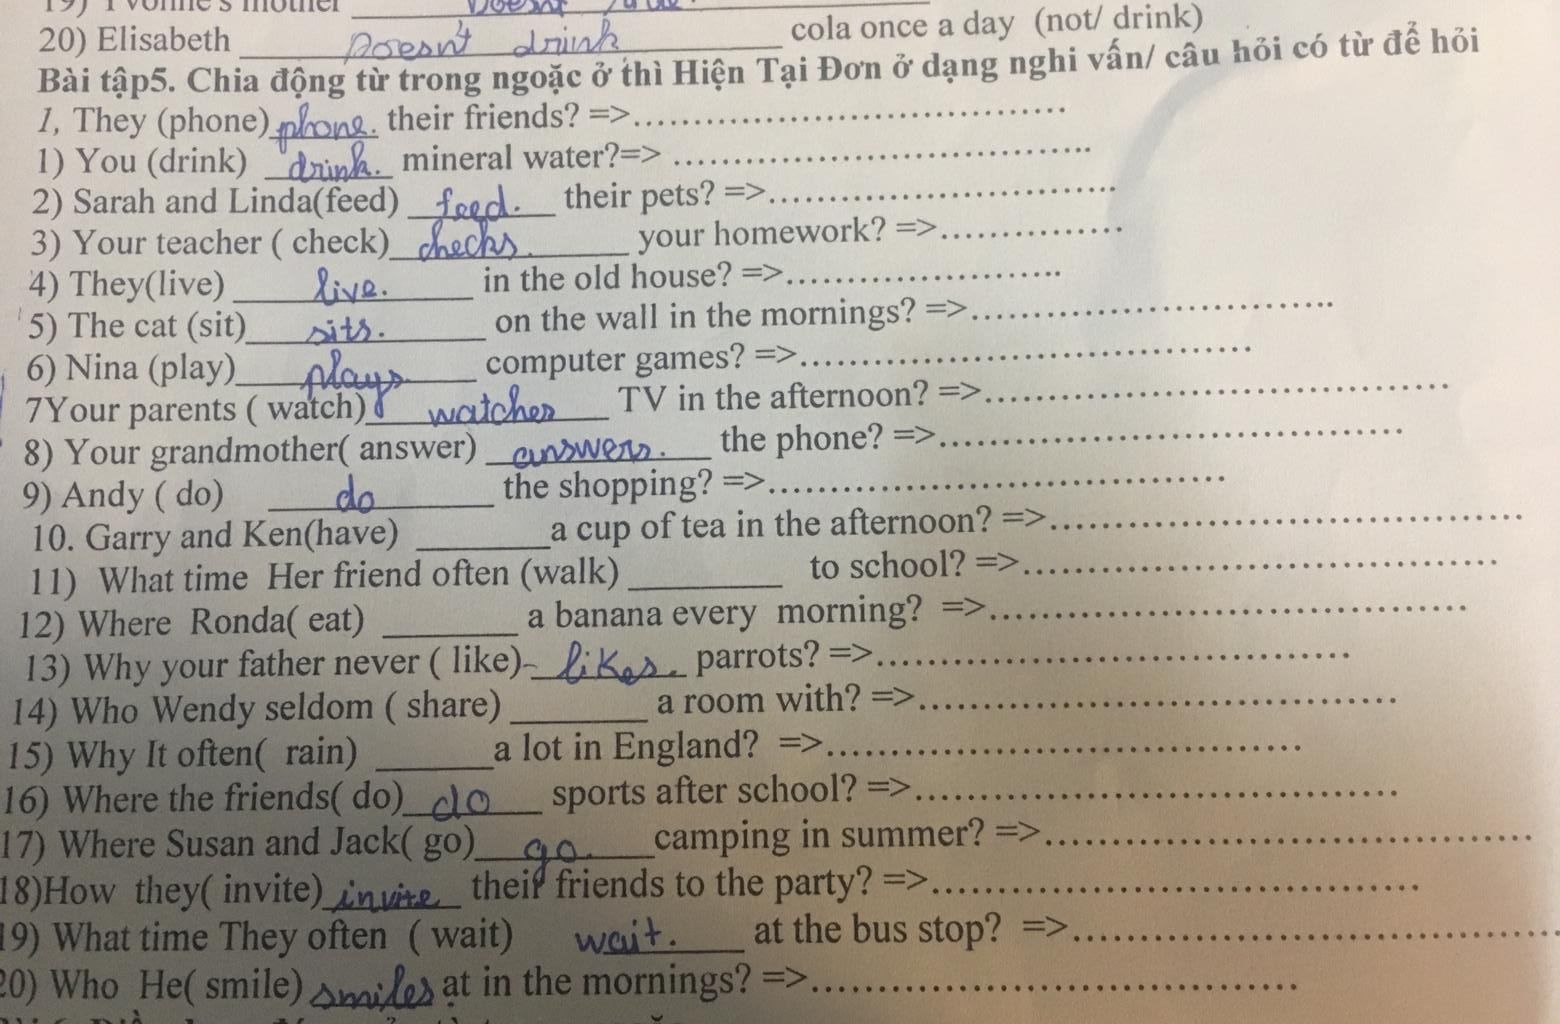 19) Yvonne's mother Doesn't
20) Elisabeth Doesn't drink cola once a day (not/ drink)
Bài tập5. Chia động từ trong ngoặc ở thì Hiện Tại Đơn ở dạng nghi vấn/ câu hỏi có từ để hỏi
1, They (phone) phone. their friends? =>........................................
1) You (drink) drink. mineral water?=> ........................................
2) Sarah and Linda(feed) feed. their pets? =>.................................
3) Your teacher ( check) checks. your homework? =>................
4) They(live) live. in the old house? =>........................
5) The cat (sit) sits. on the wall in the mornings? =>................................
6) Nina (play) plays computer games? =>........................................
7Your parents ( watch) watches TV in the afternoon? =>........................................
8) Your grandmother( answer) answers. the phone? =>........................................
9) Andy ( do) do the shopping? =>........................................
10. Garry and Ken(have) _______a cup of tea in the afternoon? =>........................................
11) What time Her friend often (walk) ________ to school? =>........................................
12) Where Ronda( eat) _______ a banana every morning? =>........................................
13) Why your father never ( like) likes. parrots? =>........................................
14) Who Wendy seldom ( share) _______ a room with? =>........................................
15) Why It often( rain) ______a lot in England? =>........................................
16) Where the friends( do) do sports after school? =>........................................
17) Where Susan and Jack( go) go. camping in summer? =>........................................
18)How they( invite) invite their friends to the party? =>........................................
19) What time They often ( wait) wait. at the bus stop? =>........................................
20) Who He( smile) smiles at in the mornings? =>........................................